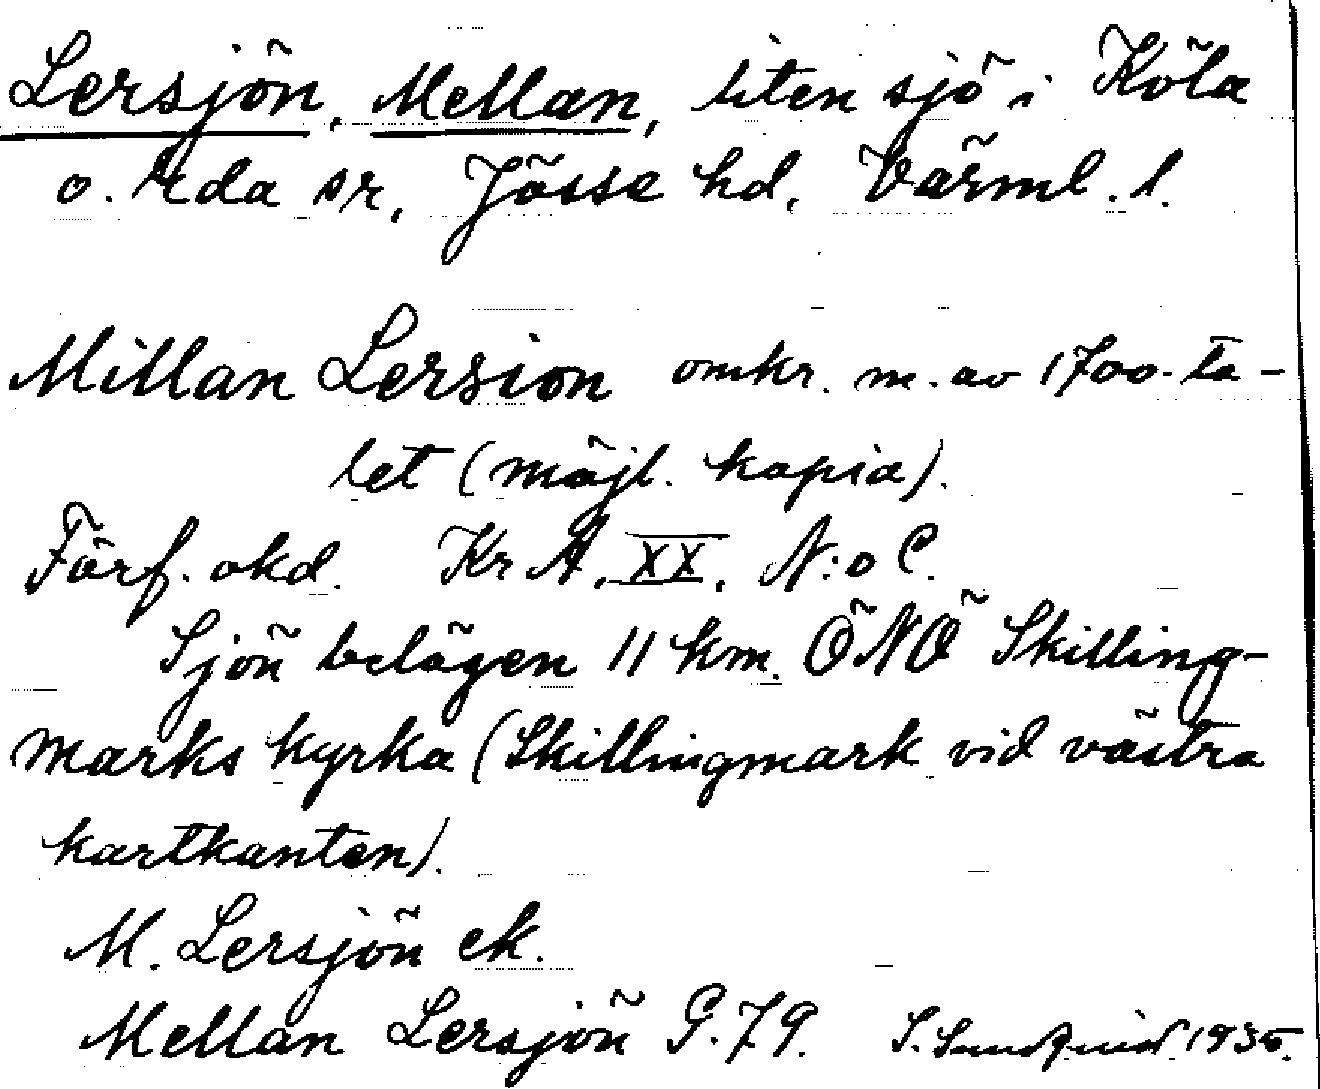 Lersjön, Mellan, liten sjö i Köla
o. Äda sr, Jösse hd, Värml. l.
Millan Lersion omkr. m. av 1700-ta-
let (möjl. kopia).
Förf. okd. Kr A. XX. N:o C.
Sjön belägen 11 km. ÖNÖ Skilling-
marks kyrka (Skillingmark vid västra
kartkanten).
M. Lersjön ek.
Mellan Lersjön G. 79. S. Sundquist 1935.